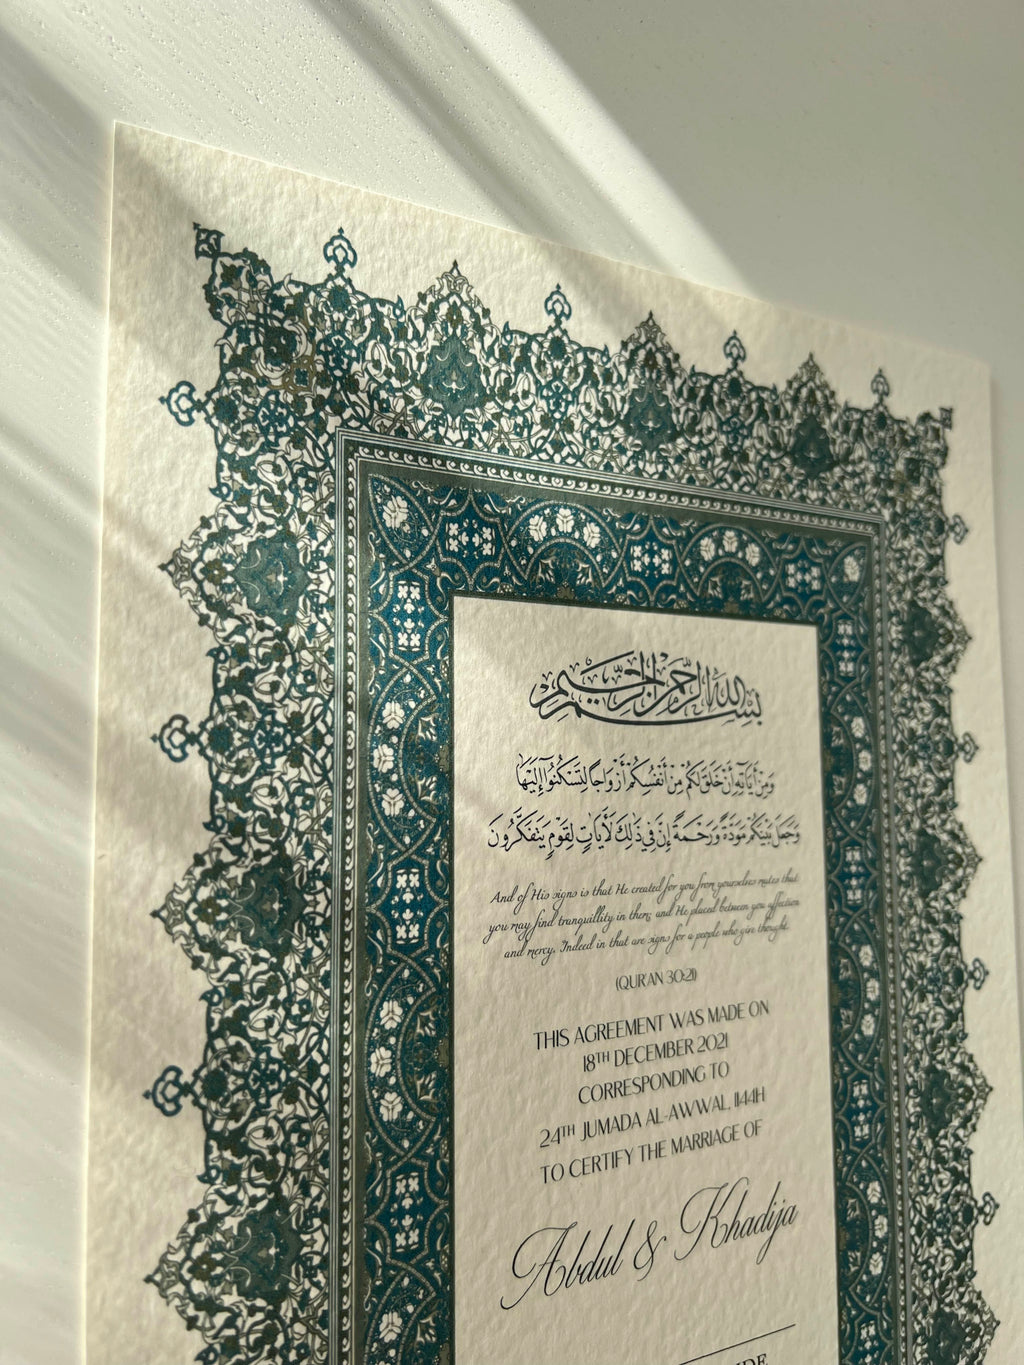 بِسْمِ اللَّهِ الرَّحْمَنِ الرَّحِيمِ
وَمِنْ آيَاتِهِ أَنْ خَلَقَ لَكُمْ مِنْ أَنْفُسِكُمْ أَزْوَاجًا لِتَسْكُنُوا إِلَيْهَا
وَجَعَلَ بَيْنَكُمْ مَوَدَّةً وَرَحْمَةً إِنَّ فِي ذَلِكَ لَآيَاتٍ لِقَوْمٍ يَتَفَكَّرُونَ
And of His signs is that He created for you from yourselves mates that
you may find tranquillity in them; and He placed between you affection
and mercy. Indeed in that are signs for a people who give thought.
(QUR'AN 30:21)
THIS AGREEMENT WAS MADE ON
18TH DECEMBER 2021
CORRESPONDING TO
24TH JUMADA AL-AWWAL, 1144H
TO CERTIFY THE MARRIAGE OF
Abdul & Khadija